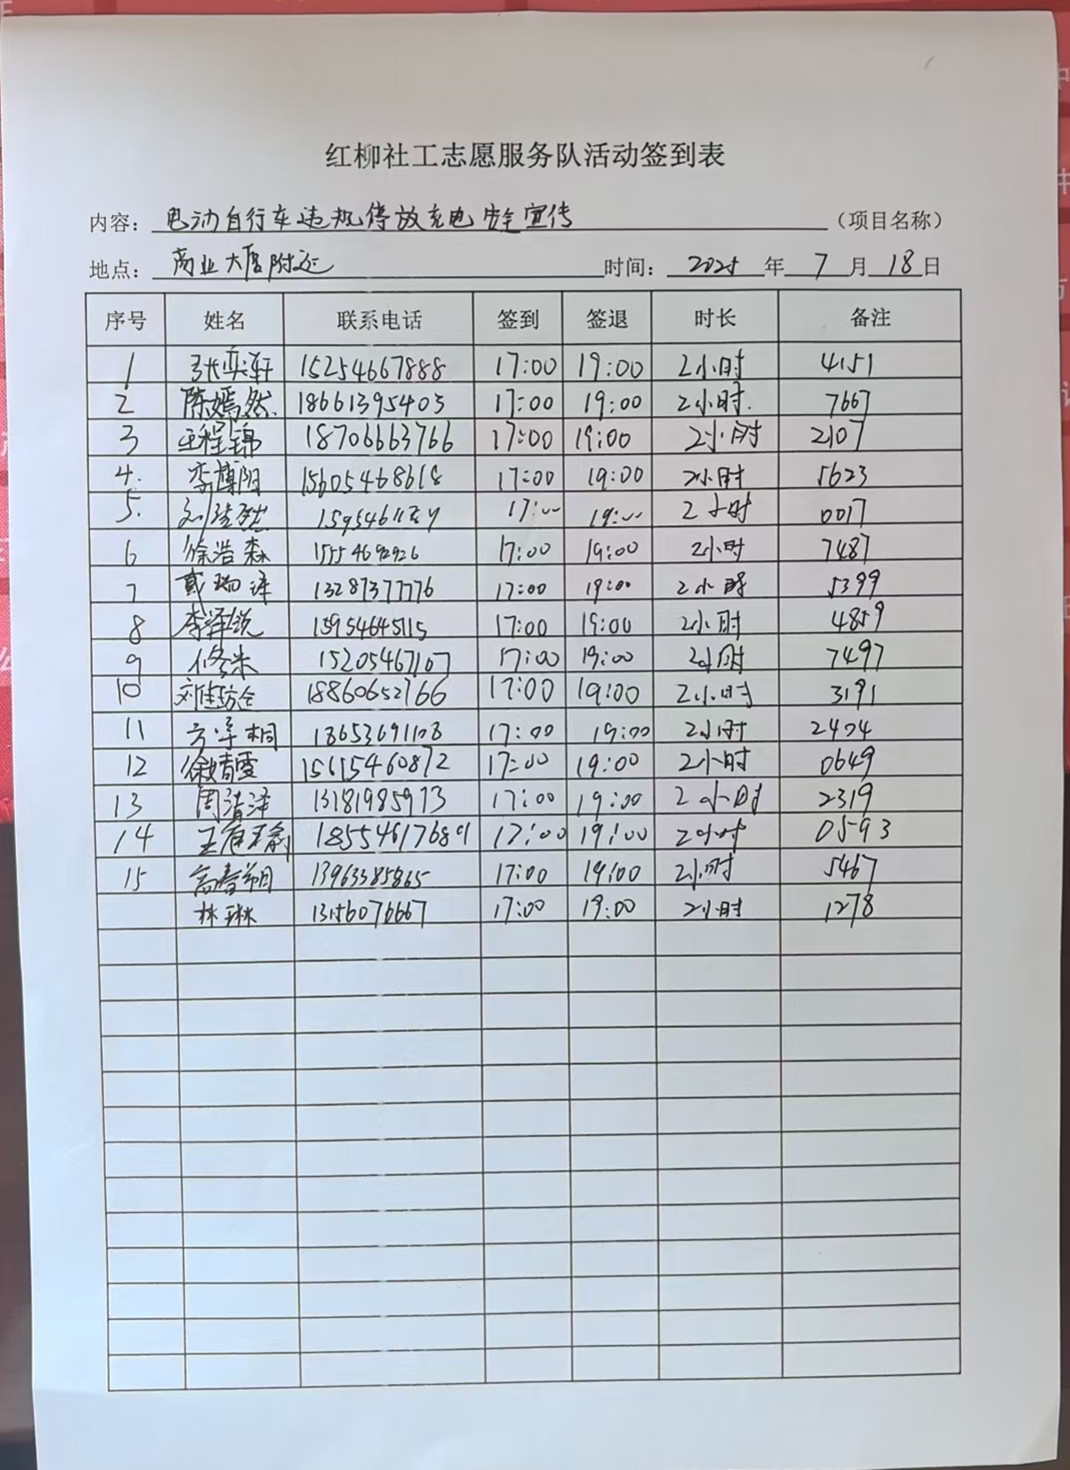 红柳社工志愿服务队活动签到表
内容： 电动自行车违规停放充电安全宣传 （项目名称）
地点： 商业大厦附近 时间： 2025 年 7 月 18 日
序号 姓名 联系电话 签到 签退 时长 备注
1 张奕轩 15254667888 17:00 19:00 2小时 4151
2 陈嫣然 18661395405 17:00 19:00 2小时. 7667
3 王程锦 18706663766 17:00 19:00 2小时 2107
4. 李博阳 15605468618 17:00 19:00 2小时 5623
5. 17:00 19:00 2小时 0017
6 徐浩森 15554692926 17:00 19:00 2小时 7487
7 戴瑞泽 13287377776 17:00 19:00 2小时 5399
8 李泽锐 15954645115 17:00 19:00 2小时 4859
9 15205467107 17:00 19:00 2小时 7497
10 18860652766 17:00 19:00 2小时 3191
11 17:00 19:00 2小时 2404
12 15615460872 17:00 19:00 2小时 0649
13 周清泽 13181985973 17:00 19:00 2小时 2319
14 17:00 19:00 2小时 0593
15 高春朔 13963385865 17:00 19:00 2小时 5467
林琳 13156076667 17:00 19:00 2小时 1278